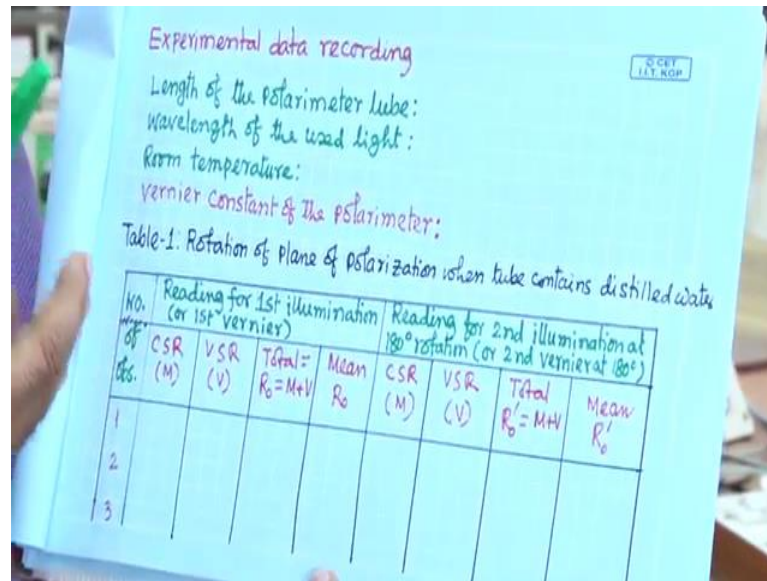 Experimental data recording
© CET
I.I.T. KGP
Length of the polarimeter tube:
Wavelength of the used light:
Room temperature:
Vernier constant of the polarimeter:
Table-1: Rotation of plane of polarization when tube contains distilled water
No. of obs.
Reading for 1st illumination
(or 1st vernier)
Reading for 2nd illumination at
180° rotation (or 2nd vernier at 180°)
CSR (M)
VSR (V)
Total = R₀ = M+V
Mean R₀
CSR (M)
VSR (V)
Total R₀' = M+V
Mean R₀'
1
2
3